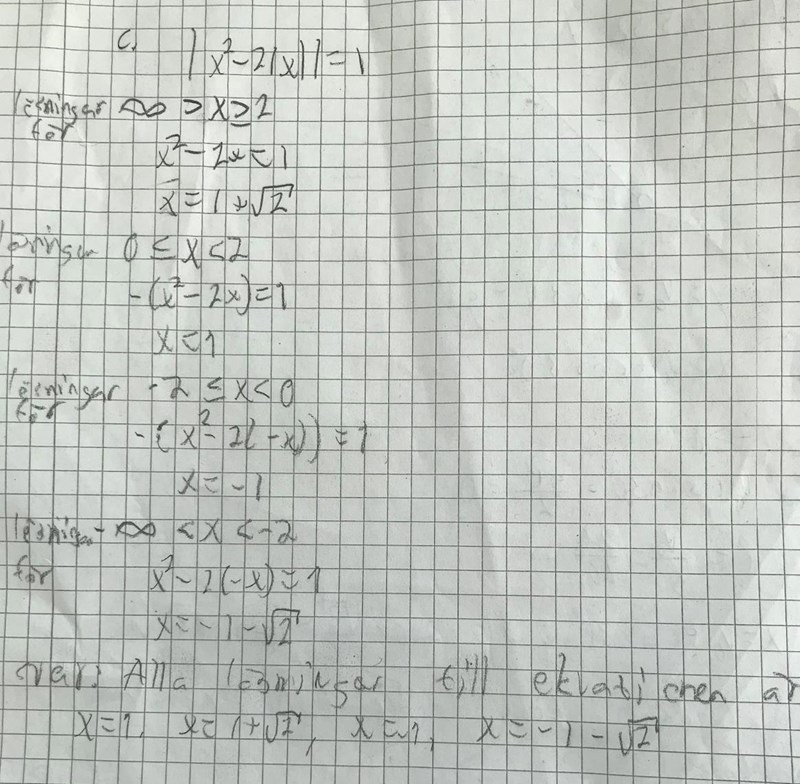 c. |x²-2|x||=1
lösningar för ∞ > x ≥ 2
x²-2x=1
x=1+√2
lösningar för 0 ≤ x < 2
-(x²-2x)=1
x=1
lösningar för -2 ≤ x < 0
-(x²-2(-x))=1
x=-1
för -∞ < x < -2
x²-2(-x)=1
x=-1-√2
Alla lösningar till är
x=1, x=1+√2, x=-1, x=-1-√2